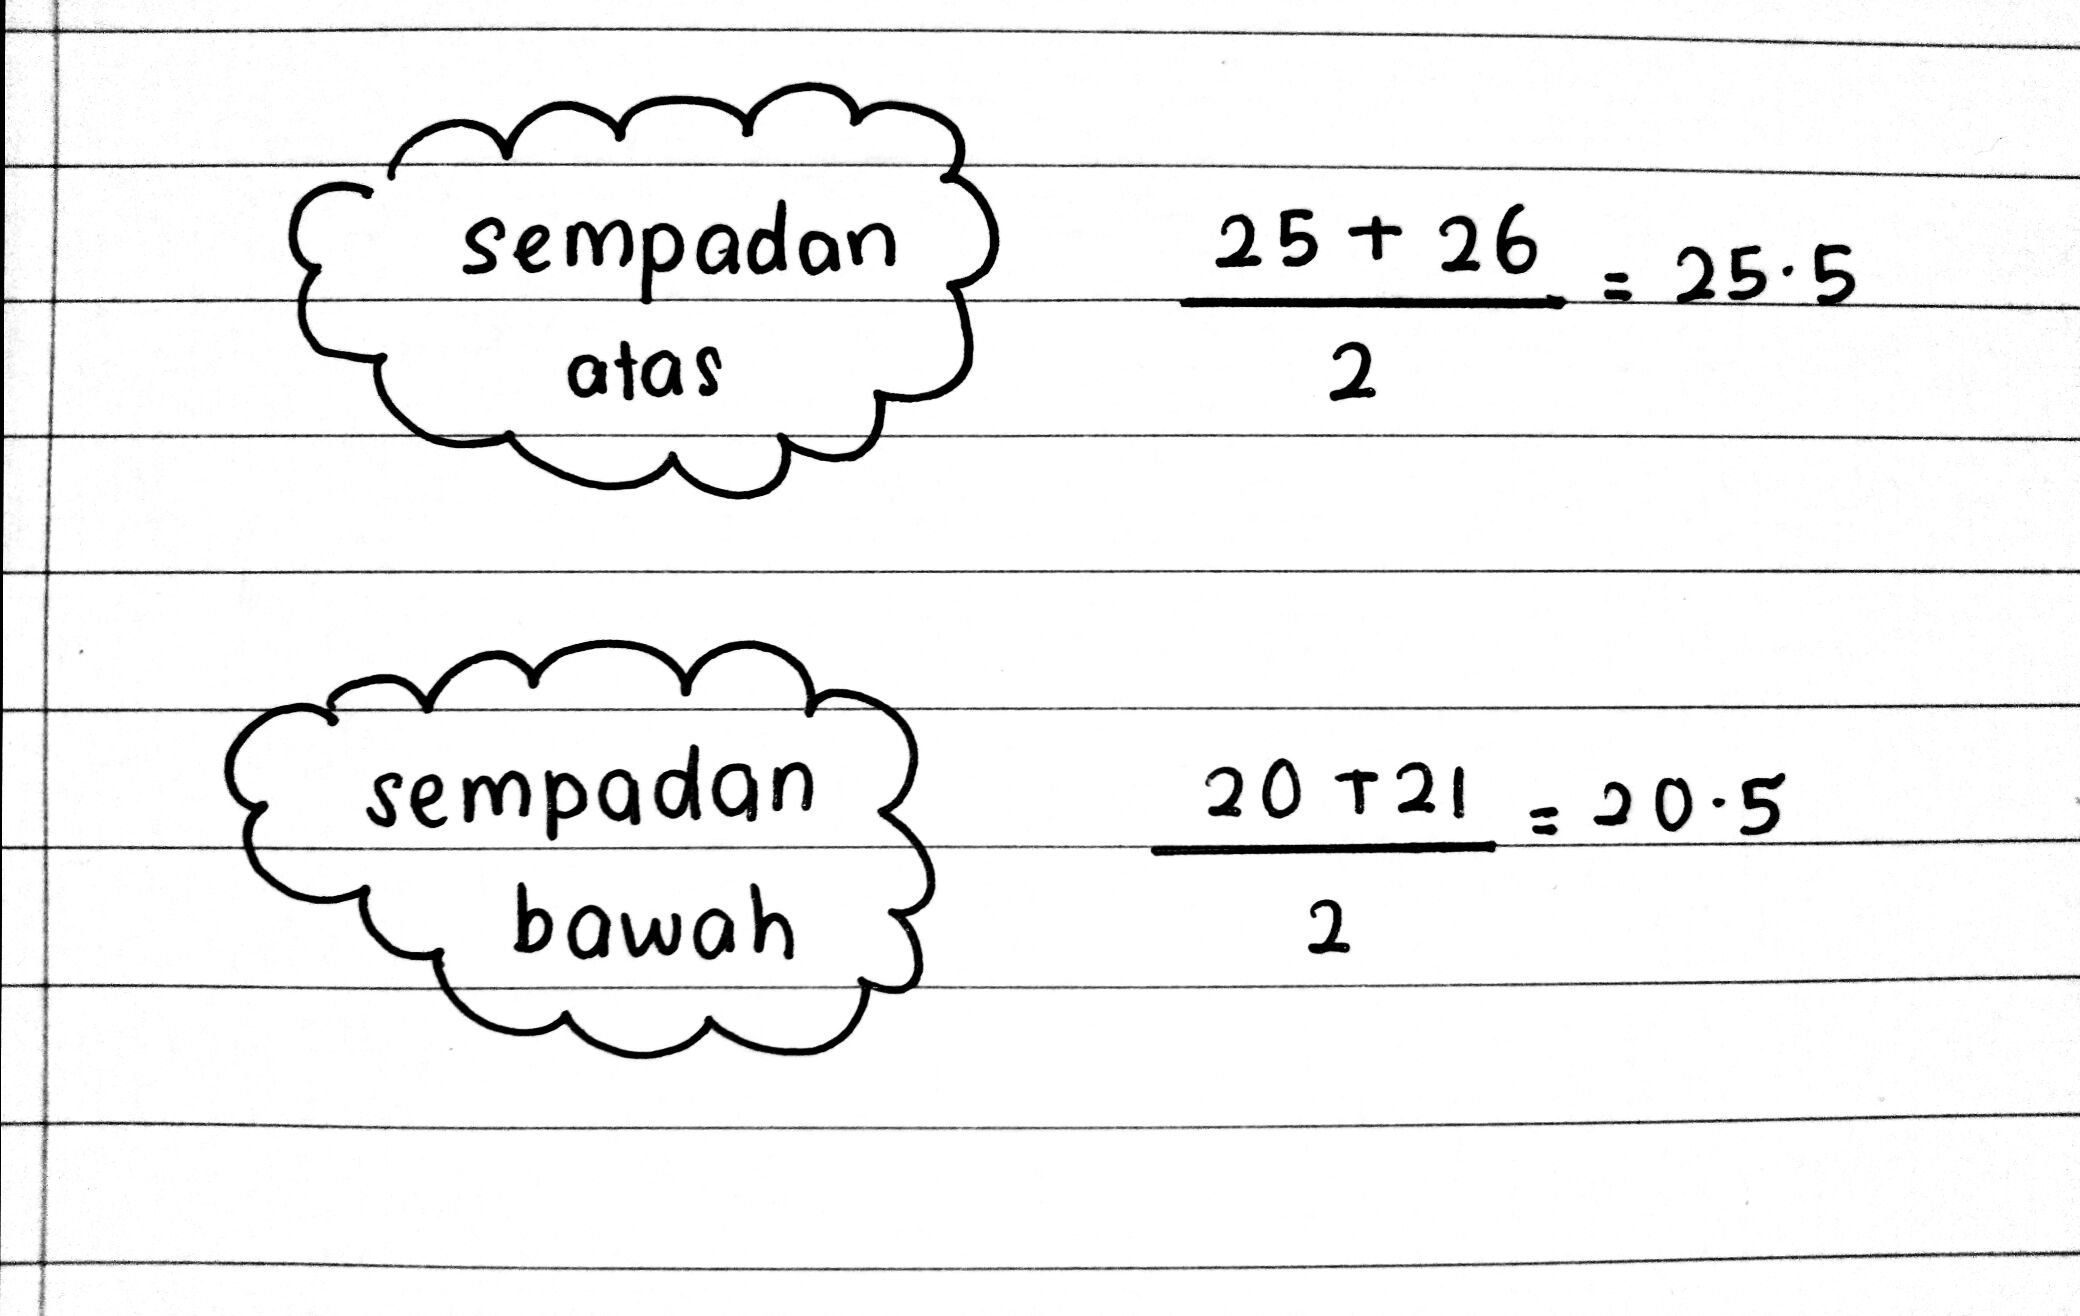 sempadan
atas
25 + 26
= 25.5
2
sempadan
bawah
20 + 21
= 20.5
2